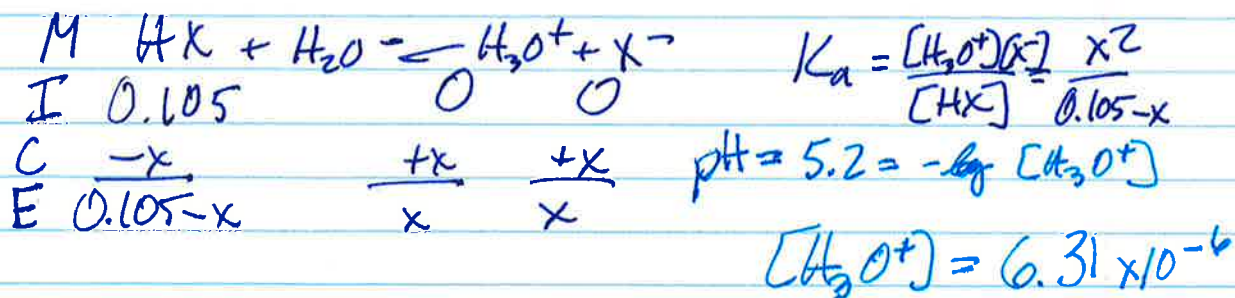 M HX + H₂O ⇌ H₃O⁺ + X⁻
I 0.105 0 0
C -x +x +x
E 0.105-x x x
Ka = [H₃O⁺][X⁻] / [HX] = x² / 0.105-x
pH = 5.2 = -log [H₃O⁺]
[H₃O⁺] = 6.31 x10⁻⁶